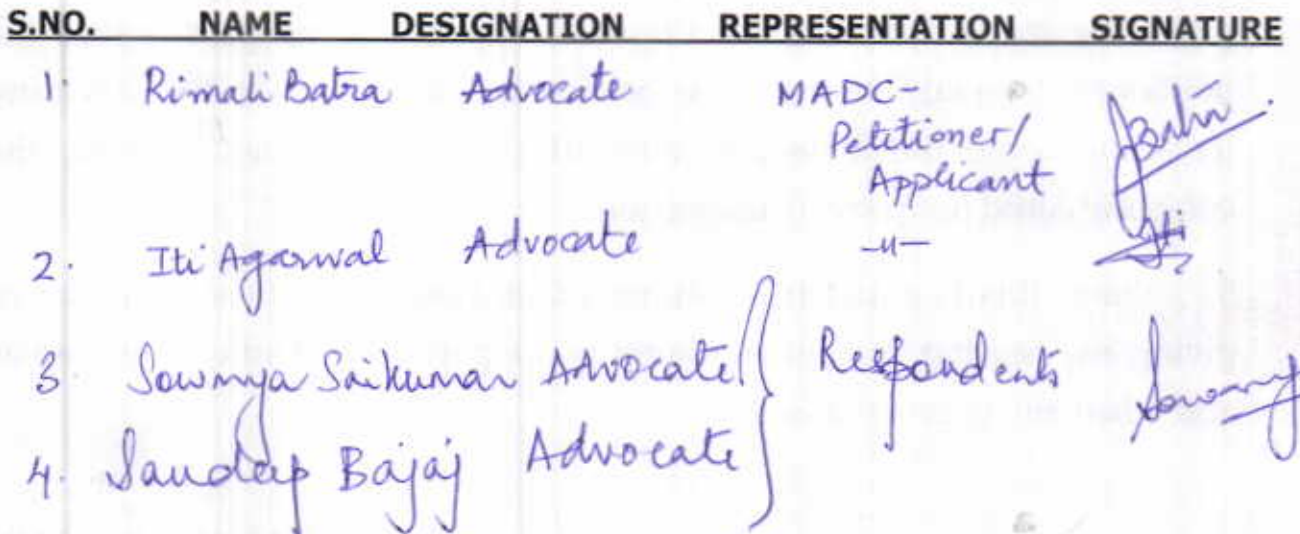 S.NO. NAME DESIGNATION REPRESENTATION SIGNATURE
1. Rimali Batra Advocate MADC-
Petitioner/
Applicant
2. Iti Agarwal Advocate -"-
3. Sowmya Saikumar Advocate Respondents
4. Sandeep Bajaj Advocate